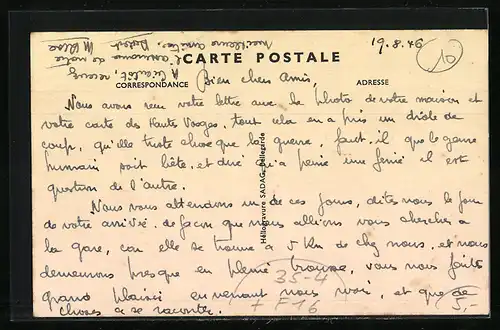 CARTE POSTALE
19.8.46
CORRESPONDANCE
ADRESSE
Bien chers Amis,
Nous avons reçu votre lettre avec la photo de votre maison et
votre carte des Hautes Vosges, tout cela en a pris un drôle de
coup, qu'elle triste chose que la guerre, faut-il que le genre
humain soit bête, et dire qu'a peine une finie il est
question de l'autre.
Nous vous attendons un de ces jours, dites nous le jour
de votre arrivé, de façon que nous allions vous chercher a
la gare, car elle se trouve a 5 Km de chez nous, et nous
demeurons presque en pleine brousse, vous nous faites
grand plaisir en venant nous voir, et que de
choses a se raconter.
A bientôt, recevez
l'assurance de notre
meilleure amitiée.
Héliogravure SADAG, Bellegarde
35-4
F 16
5,-